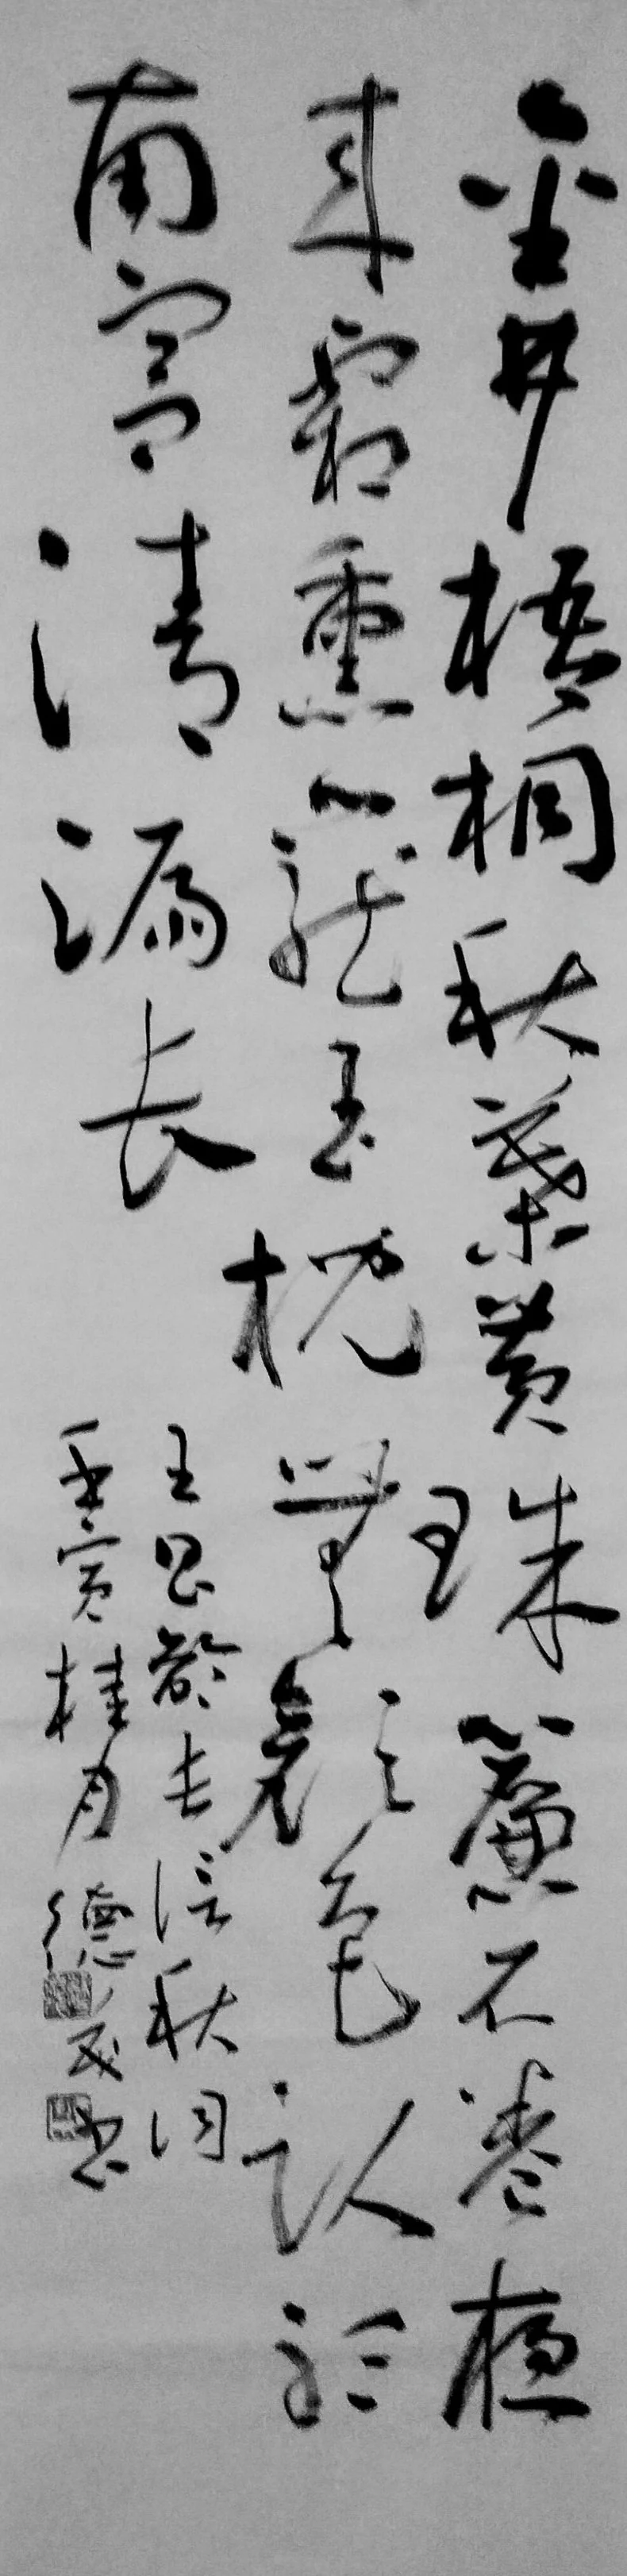 金井梧桐秋葉黄珠簾不卷夜
来霜熏籠玉枕無顔色臥聽
南宫清漏长
王昌龄长信秋词
壬寅桂月德书